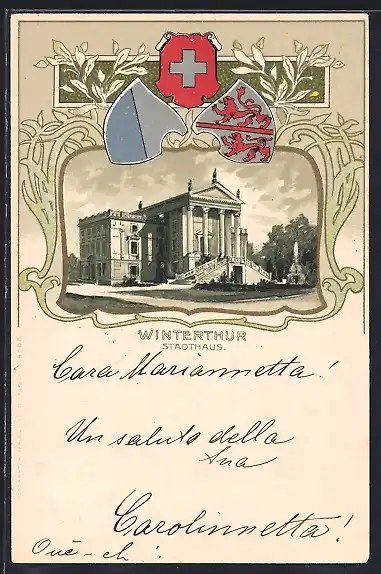 WINTERTHUR
STADTHAUS.
Cara Mariannetta!
Un saluto della
tua
Carolinnetta!